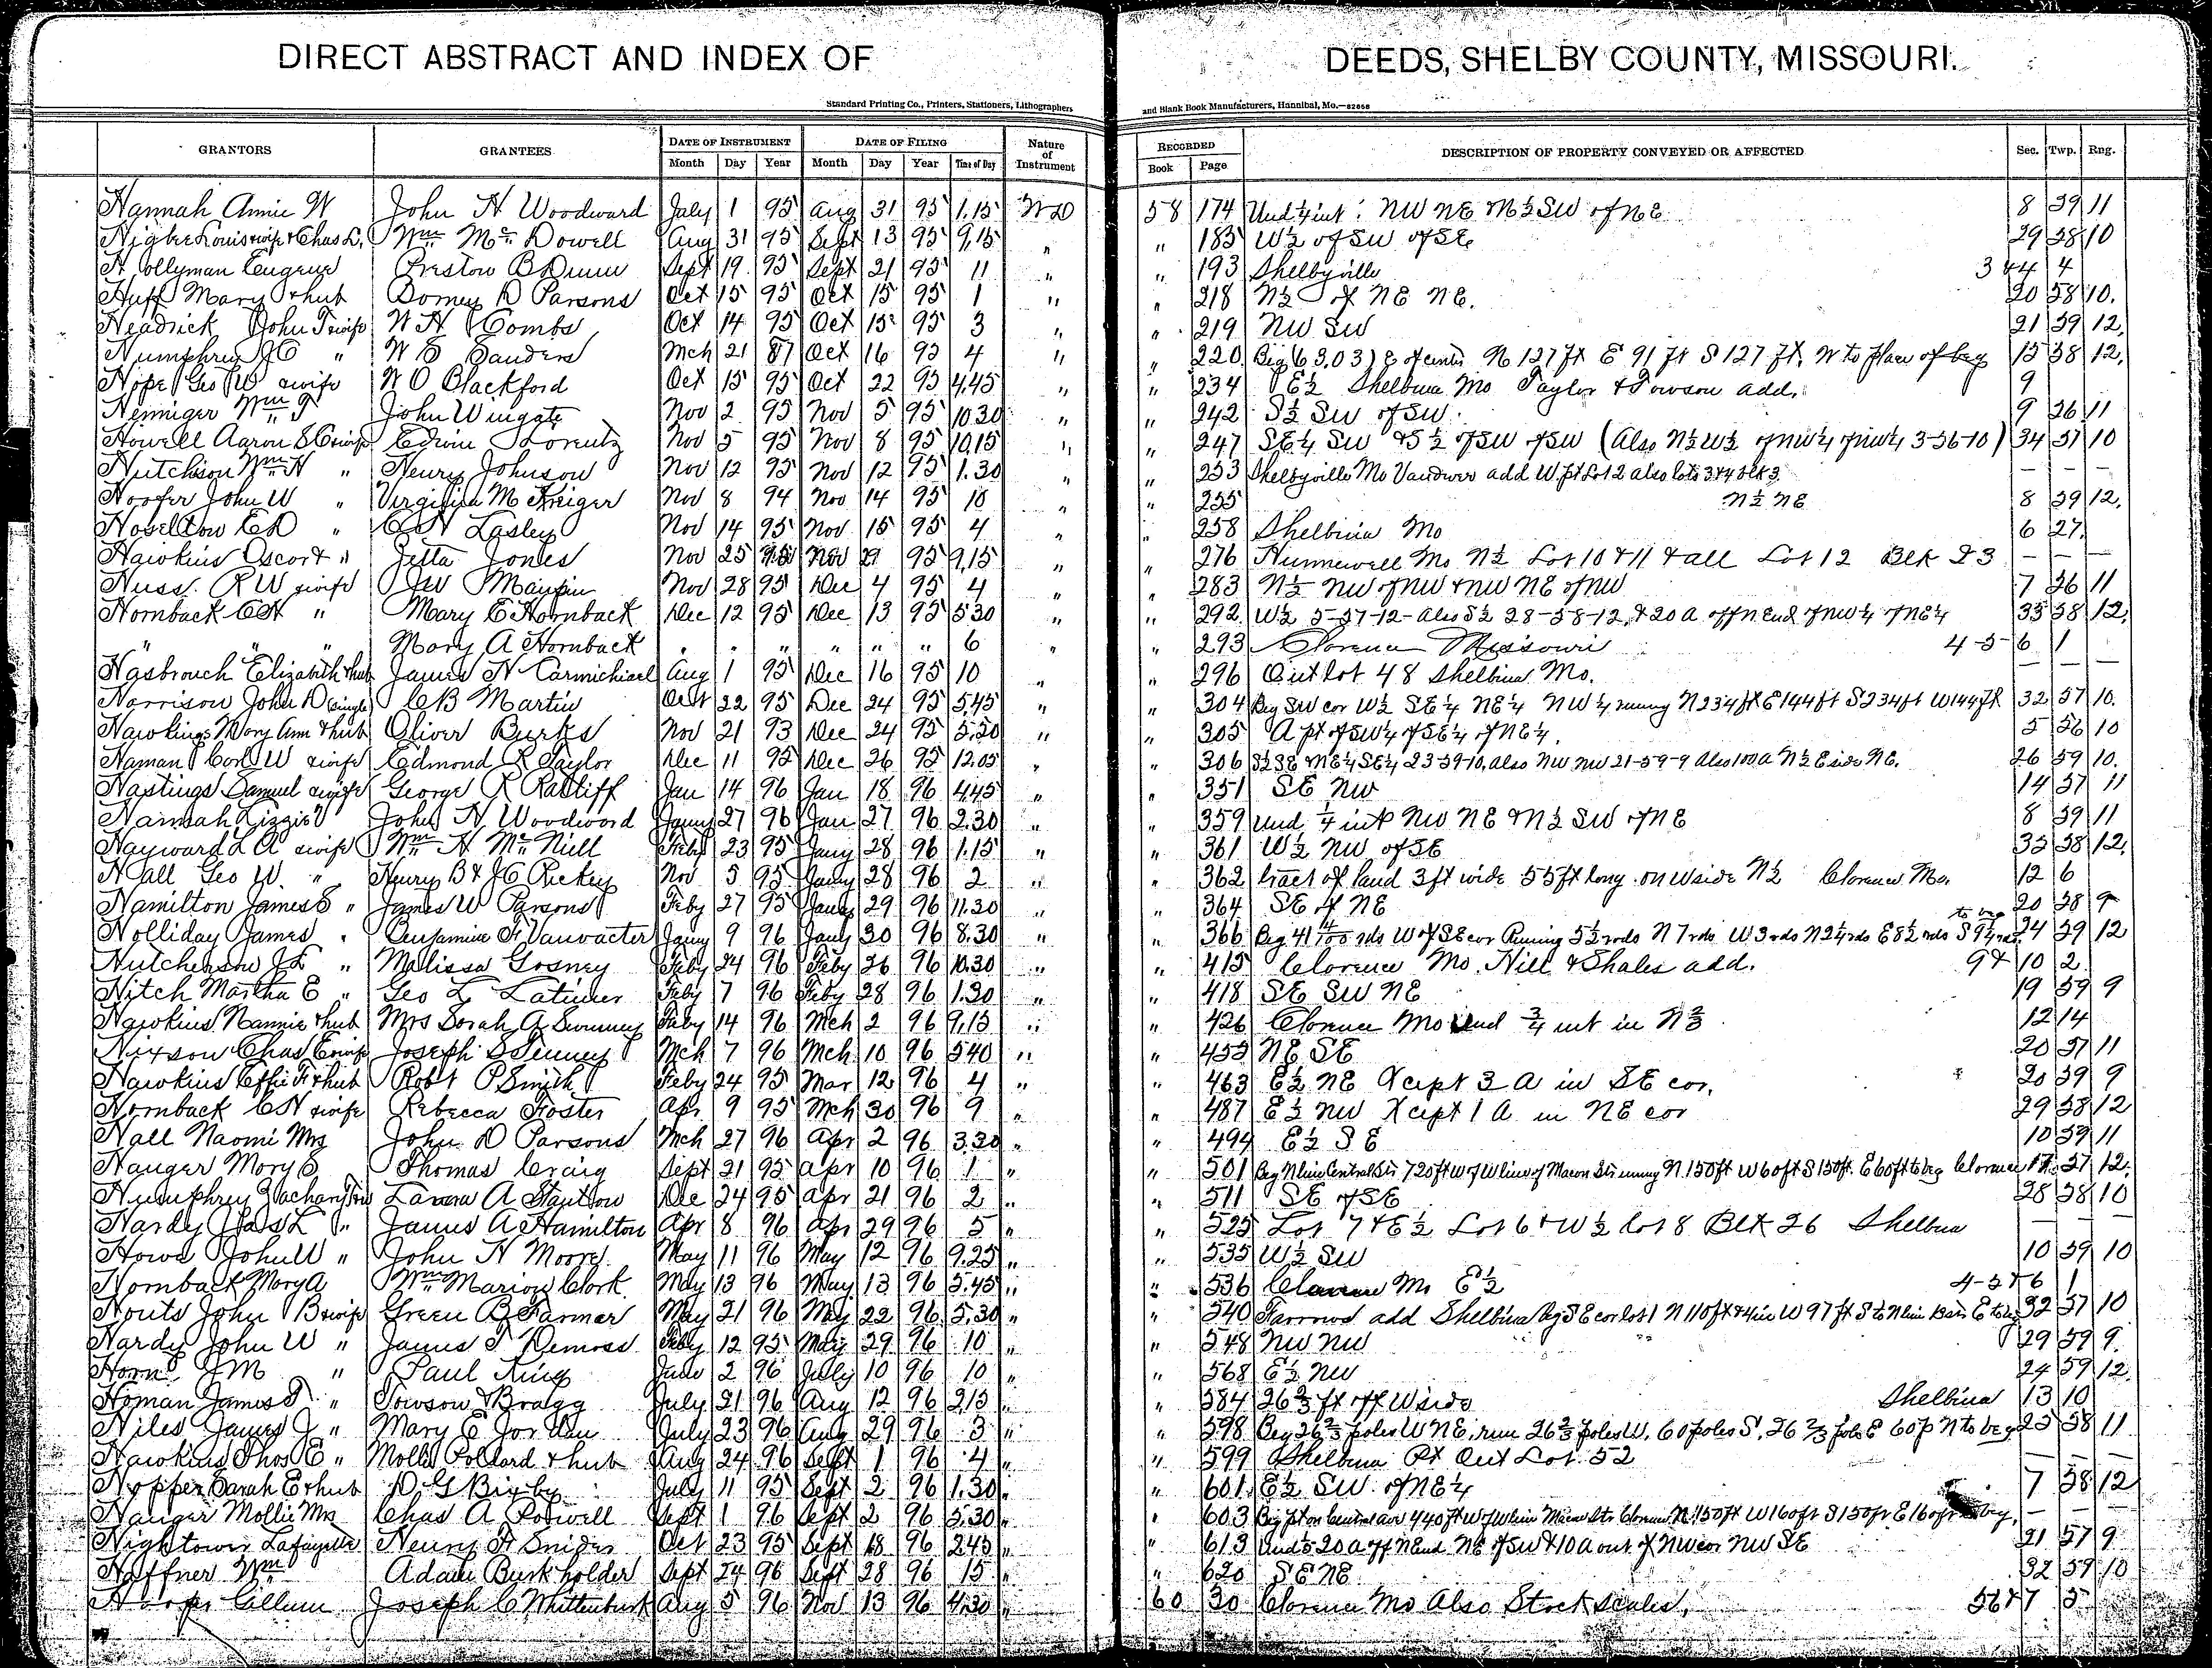 DIRECT ABSTRACT AND INDEX OF DEEDS, SHELBY COUNTY, MISSOURI.
Standard Printing Co., Printers, Stationers, Lithographers and Blank Book Manufacturers, Hannibal, Mo.—82868
GRANTORS GRANTEES DATE OF INSTRUMENT DATE OF FILING Nature of Instrument RECORDED DESCRIPTION OF PROPERTY CONVEYED OR AFFECTED Sec. Twp. Rng.
Month Day Year Month Day Year Time of Day Book Page
Hannah Annie W John H Woodward July 1 95 Aug 31 95 1.15 WD 58 174 Und ¼ int NW NE & N½ SW of NE 8 59 11
Louis wife & Chas L. Wm McDowell Aug 31 95 Sept 13 95 9.15 " " 185 W½ of SW of SE 29 58 10
Hollyman Eugene Preston B Dunn Sept 19 95 Sept 21 95 11 " " 193 Shelbyville 3 & 4 4
Huff Mary & hub Dorney D Parsons Oct 15 95 Oct 15 95 1 " " 218 N½ of NE NE. 20 58 10.
Headrick John T wife W H Combs Oct 14 95 Oct 15 95 3 " " 219 NW SW 21 59 12.
Humphrey J C " W E Sanders Mch 21 87 Oct 16 95 4 " " 220 Beg (63,03) E of center N 127 ft E 91 ft S 127 ft, W to place of beg 15 58 12.
Hope Geo W wife W O Blackford Oct 15 95 Oct 22 95 4.45 " " 234 E½ Shelbina Mo Taylor & Towson add. 9
Henniger Wm T John Wingate Nov 2 95 Nov 5 95 10.30 " " 242 S½ SW of SW. 9 56 11
Howell Aaron S C wife Edwin Lorentz Nov 5 95 Nov 8 95 10.15 " " 247 SE¼ SW & S½ of SW of SW (Also N½ W½ of NW¼ of NW¼ 3-56-10) 34 57 10
Hutchison Wm H " Henry Johnson Nov 12 95 Nov 12 95 1.30 " " 253 Shelbyville Mo Vandiver add W. pt Lot 2 also lots 3 & 4 blk 3. — — —
Hoofer John W " Virginia M Kreiger Nov 8 94 Nov 14 95 10 " " 255 N½ NE 8 59 12.
Hoselton E D " C H Lasley Nov 14 95 Nov 15 95 4 " " 258 Shelbina Mo 6 27.
Hawkins Oscor & " Zetta Jones Nov 25 95 Nov 29 95 9.15 " " 276 Hunnewell Mo N½ Lot 10 & 11 & all Lot 12 Blk 23 — — —
Huss. R W wife J W Maupin Nov 28 95 Dec 4 95 4 " " 283 N½ NW of NW & NW NE of NW 7 56 11
Hornback C H " Mary E Hornback Dec 12 95 Dec 13 95 5.30 " " 292 W½ 5-57-12- Also S½ 28-58-12, & 20 A off N End of NW¼ of NE¼ 33 58 12.
" " " Mary A Hornback " " " " " " 6 " " 293 Clarence Missouri 4-5-6 1
Hasbrouch Elizabeth & hub James H Carmichael Aug 1 95 Dec 16 95 10 " " 296 Out lot 48 Shelbina Mo. — — —
Harrison John D (single) C B Martin Oct 22 95 Dec 24 95 5.45 " " 304 Beg SW cor W½ SE¼ NE¼ NW¼ runing N 234 ft E 144 ft S 234 ft W 144 ft 32 57 10.
Hawkings Mary Ann & hub Oliver Burks Nov 21 93 Dec 24 95 5.50 " " 305 A pt of SW¼ of SE¼ of NE¼. 5 56 10
Haman Carl W wife Edmond R Taylor Dec 11 95 Dec 26 95 12.05 " " 306 S½ SE & NE¼ SE¼ 23-59-10, also NW NW 21-59-9 Also 100 A N½ E side NE. 26 59 10.
Hastings Samuel wife George R Ratliff Jan 14 96 Jan 18 96 4.45 " " 351 SE NW 14 57 11
Hannah Lizzie V John H Woodword Jany 27 96 Jan 27 96 2.30 " " 359 Und ¼ int NW NE & N½ SW of NE 8 59 11
Hayward L A wife Wm H McNeill Feby 23 95 Jany 28 96 1.15 " " 361 W½ NW of SE 35 58 12.
Hall Geo W. " Henry B & J C Rickey Nov 5 95 Jany 28 96 2 " " 362 tract of land 3 ft wide 55 ft long on W side N½ Clarence Mo. 12 6
Hamilton James E " James W Parsons Feby 27 95 Jany 29 96 11.30 " " 364 SE of NE 20 58 9
Holliday James " Benjamin F Vanvacter Jany 9 96 Jany 30 96 8.30 " " 366 Beg 41 4/100 rds W of SE cor Runing 5½ rods N 7 rds W 3 rds N 2¼ rds E 8½ rds S 9¼ rds to beg 24 59 12
Hutcherson J L " Malissa Gosney Feby 24 96 Feby 26 96 10.30 " " 415 Clarence Mo, Hill & Shales add. 9 & 10 2
Hitch Martha E " Geo L Latimer Feby 7 96 Feby 28 96 1.30 " " 418 SE SW NE 19 59 9
Hawkins Nannie & hub Mrs Sarah A Swinney Feby 14 96 Mch 2 96 9.15 " " 426 Clarence Mo Und ¾ int in N⅔ 12 14
Hixson Chas E wife Joseph S Tenney Mch 7 96 Mch 10 96 5.40 " " 453 NE SE 20 57 11
Hawkins Effie F & hub Robt P Smith Feby 24 95 Mar 12 96 4 " " 463 E½ NE Xcipt 3 A in SE cor. 20 59 9
Hornback C H wife Rebecca Foster Apr 9 95 Mch 30 96 9 " " 487 E½ NW Xcipt 1 A in NE cor 29 58 12
Hall Naomi Mrs John D Parsons Mch 27 96 Apr 2 96 3.30 " " 494 E½ SE 10 59 11
Hanger Mary S Thomas Craig Sept 21 95 Apr 10 96 1 " " 501 Beg N line Central Str 720 ft W of W line of Macon Str runing N. 150 ft W 60 ft S 150 ft. E 60 ft to beg Clarence 17 57 12.
Humphrey Zachary Lavena A Stanton Dec 24 95 Apr 21 96 2 " " 511 SE of SE 28 58 10
Hardy Jas L " James A Hamilton Apr 8 96 Apr 29 96 5 " " 525 Lot 7 & E½ Lot 6 & W½ lot 8 Blk 26 Shelbina — — —
Howe John W " John H Moore May 11 96 May 12 96 9.25 " " 535 W½ SW 10 59 10
Hornback Mary A Wm Marion Clark May 13 96 May 13 96 5.45 " " 536 Clarence Mo E½ 4-5 & 6 1
Houts John B wife Green B Farmer May 21 96 May 22 96 5.30 " " 540 Farrows add Shelbina Beg SE cor lot 1 N 110 ft & 4 in W 97 ft S to N line E to beg 32 57 10
Hardy John W " James T Demoss Feby 12 95 May 29 96 10 " " 548 NW NW 29 59 9.
Horn J M " Paul King June 2 96 July 10 96 10 " " 568 E½ NW 24 59 12.
Homan James T " Towson & Bragg July 21 96 Aug 12 96 2.15 " " 584 26⅔ ft off W side Shelbina 13 10
Hiles James J " Mary E Jordan July 23 96 Aug 29 96 3 " " 598 Beg 26⅔ poles W NE, run 26⅔ poles W, 60 poles S, 26⅔ pole E 60 p N to beg 25 58 11
Hawkins Thos E " Mollie Pollard & hub Aug 24 96 Sept 1 96 4 " " 599 Shelbina Pt Out Lot 52 — — —
Hopper Sarah E & hub D G Bigby July 11 95 Sept 2 96 1.30 " " 601 E½ SW of NE¼ 7 58 12
Hanger Mollie Mrs Chas A Powell Sept 1 96 Sept 2 96 5.30 " " 603 Beg pt on Central ave 440 ft W of W line Macon Str Clarence N. 150 ft W 160 ft S 150 ft E 160 ft to beg. — — —
Hightower Lafayette Henry F Snider Oct 23 95 Sept 18 96 2.45 " " 613 20 A off N end NE of SW & 10 A out of NW cor NW SE 21 57 9
Haffner Wm Adam Burkholder Sept 24 96 Sept 28 96 15 " " 620 SE NE 32 59 10
Cillum Joseph C Whittenburk Aug 5 96 Nov 13 96 4.30 " 60 30 Clarence Mo Also Stock scales, 5 6 & 7 5